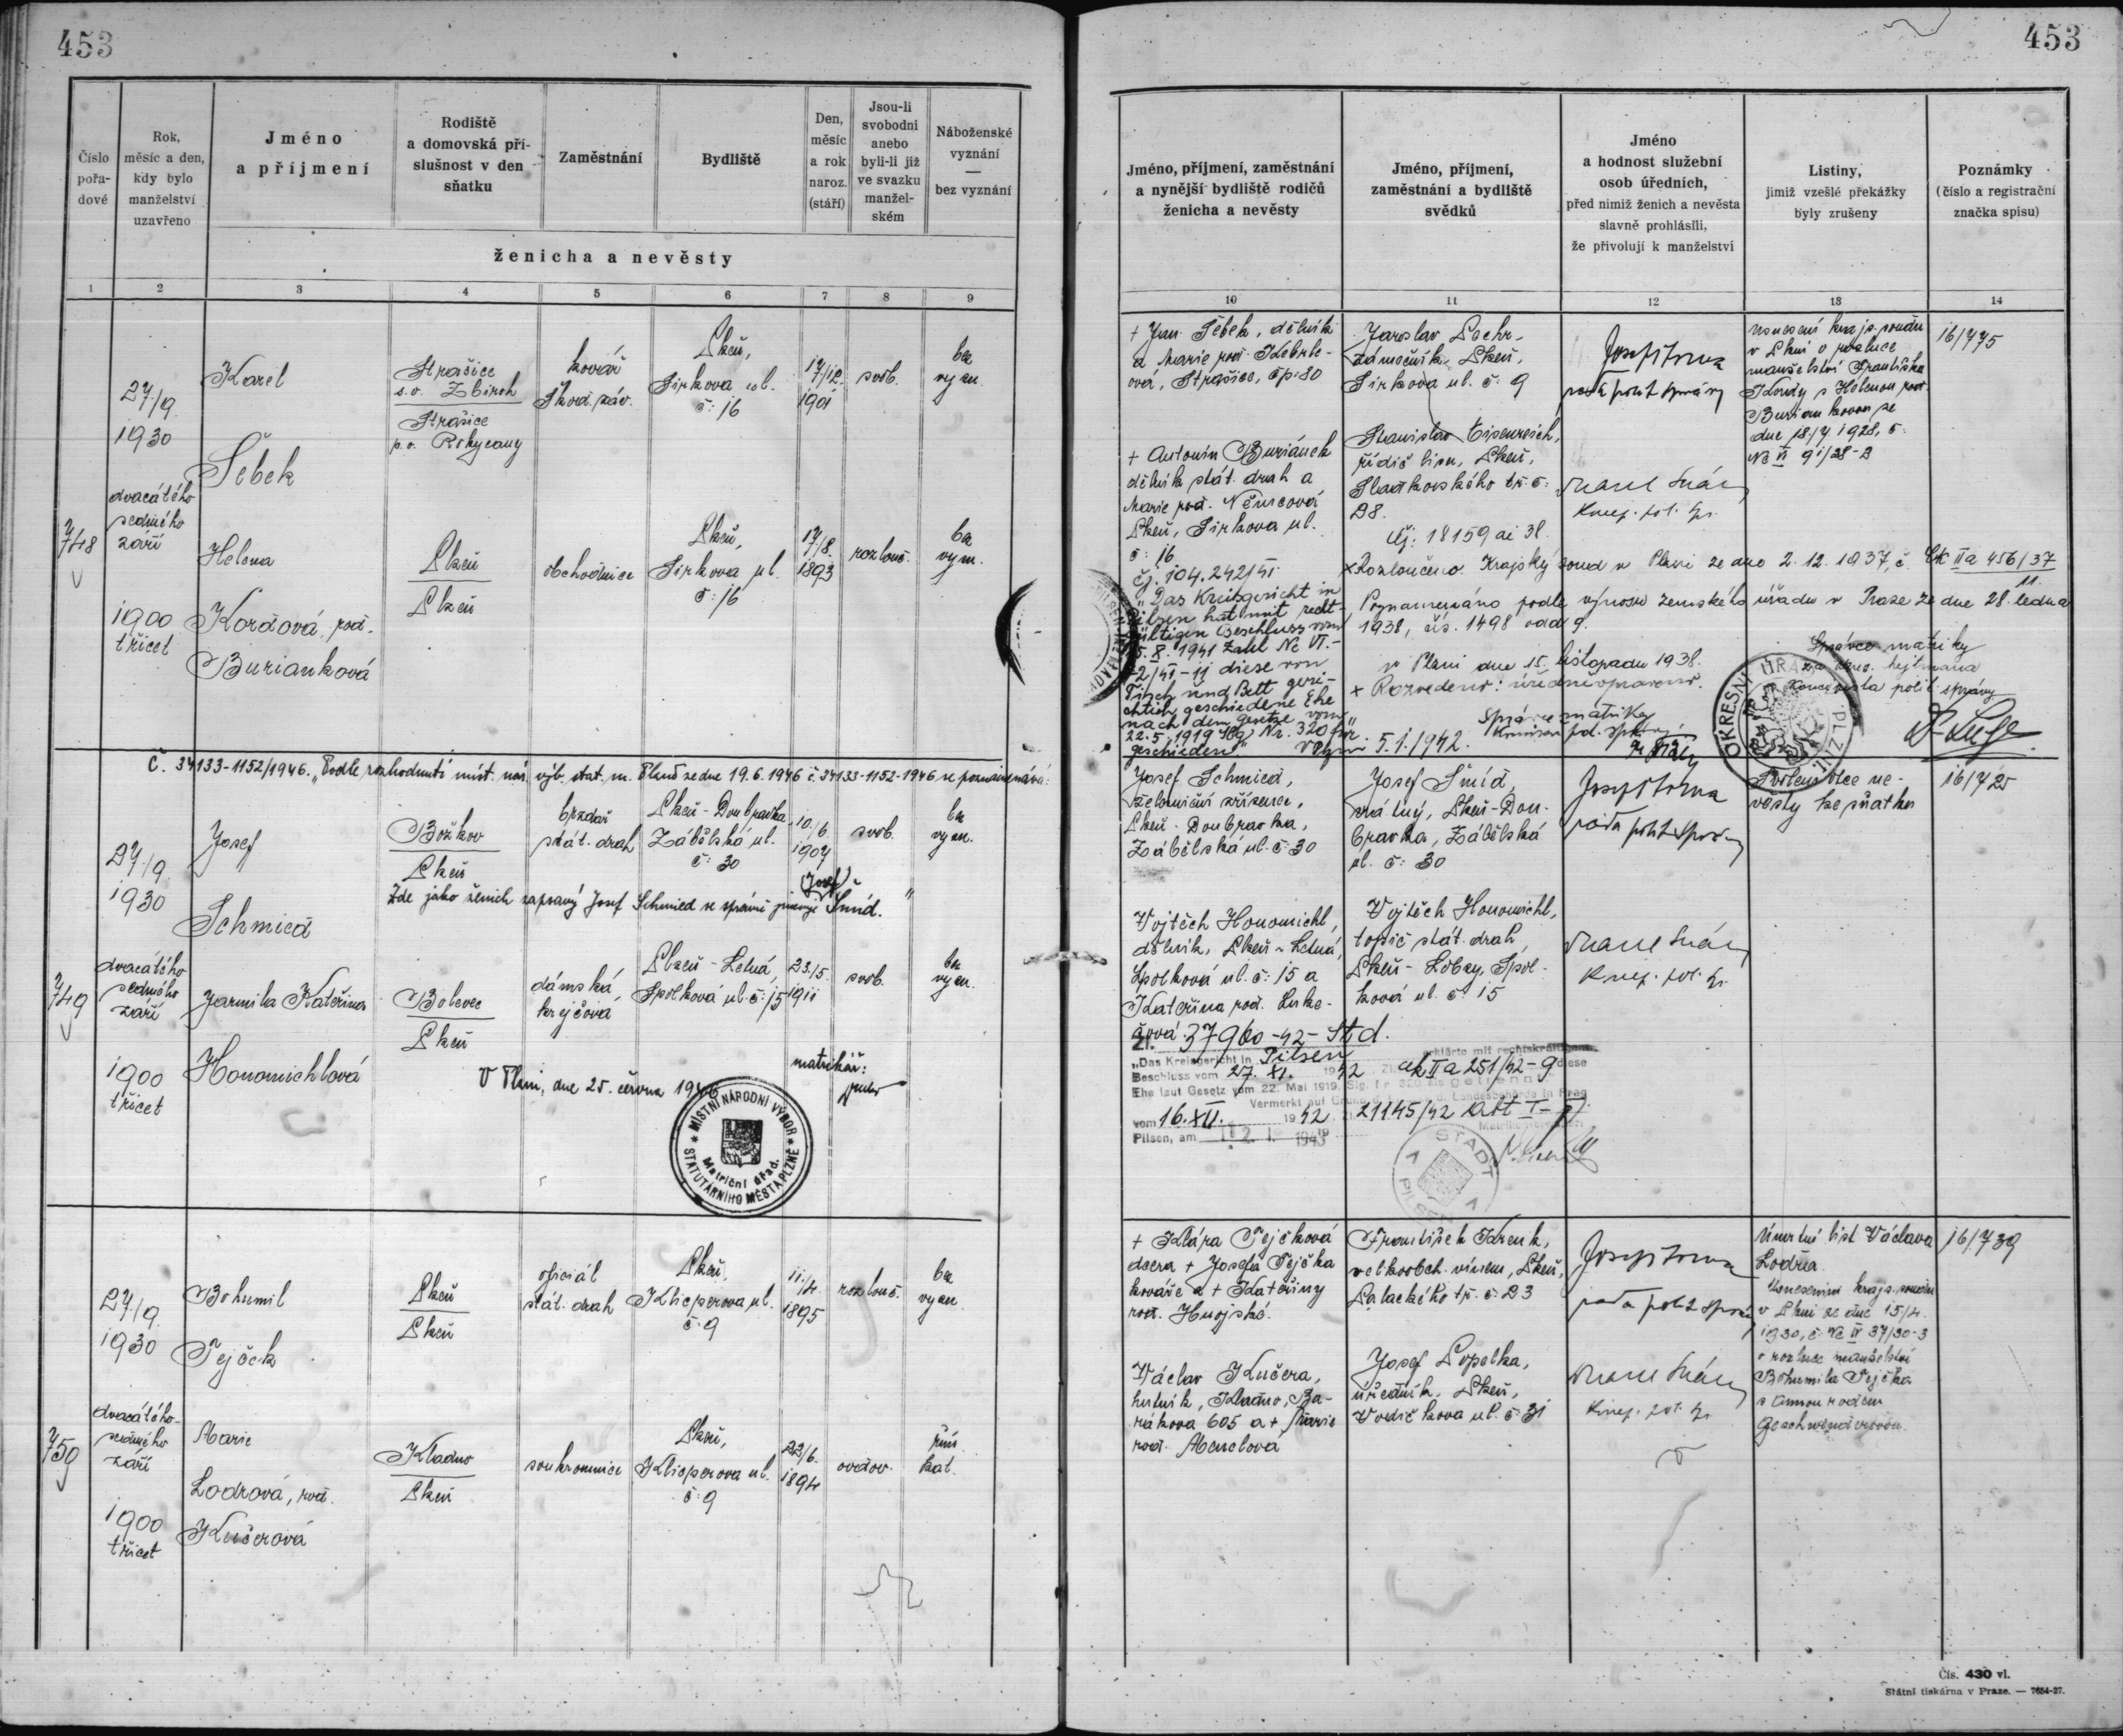 453
Číslo
pořa-
dové
Rok,
měsíc a den,
kdy bylo
manželství
uzavřeno
Jméno
a příjmení
Rodiště
a domovská pří-
slušnost v den
sňatku
Zaměstnání
Bydliště
Den,
měsíc
a rok
naroz.
(stáří)
Jsou-li
svobodni
anebo
byli-li již
ve svazku
manžel-
ském
Náboženské
vyznání
—
bez vyznání
ženicha a nevěsty
1 2 3 4 5 6 7 8 9
748
27./9.
1930
dvacátého
sedmého
září
1900
třicet
Karel
Šebek
Strašice
s. o. Zbiroh
Strašice
p. o. Rokycany
kovář
Škod. záv.
Plzeň,
Jirkova ul.
č: 16
17/12.
1901
svob.
bez
vyzn.
Helena
Korďová, roz.
Burianková
Plzeň
Plzeň
obchodnice
Plzeň,
Jirkova ul.
č: 16
17/8.
1893
rozlouč.
bez
vyzn.
Č. 34133-1152/1946. „Podle rozhodnutí míst. nár. výb. stat. m. Plzně ze dne 19.6.1946 č. 34133-1152-1946 se poznamenává:
749
27./9.
1930
dvacátého
sedmého
září
1900
třicet
Josef
Schmied
Božkov
Plzeň
brzdař
stát. drah
Plzeň-Doubravka,
Zábělská ul.
č: 30
10./6.
1907
svob.
bez
vyzn.
Zde jako ženich zapsaný Josef Schmied se správně jmenuje (Josef) Šmíd."
Jarmila Kateřina
Honomichlová
Bolevec
Plzeň
dámská
krejčová
Plzeň - Letná,
Spolková ul. č: 15
23./5.
1911
svob.
bez
vyzn.
V Plzni, dne 25. června 1946
matrikář:
MÍSTNÍ NÁRODNÍ VÝBOR
STATUTÁRNÍHO MĚSTA PLZNĚ
Matriční úřad.
750
27./9.
1930
dvacátého
sedmého
září
1900
třicet
Bohumil
Tejček
Plzeň
Plzeň
oficiál
stát. drah
Plzeň,
Klicperova ul.
č: 9
11./4.
1895
rozlouč.
bez
vyzn.
Marie
Lodrová, roz.
Kučerová
Kladno
Plzeň
soukromnice
Plzeň,
Klicperova ul.
č: 9
22/6.
1894
ovdov.
řím.
kat.
453
Jméno, příjmení, zaměstnání
a nynější bydliště rodičů
ženicha a nevěsty
Jméno, příjmení,
zaměstnání a bydliště
svědků
Jméno
a hodnost služební
osob úředních,
před nimiž ženich a nevěsta
slavně prohlásili,
že přivolují k manželství
Listiny,
jimiž vzešlé překážky
byly zrušeny
Poznámky
(číslo a registrační
značka spisu)
10 11 12 13 14
+ Jan Šebek, dělník
a Marie roz. Kebrle-
ová, Strašice, čp: 80
+ Antonín Buriánek
dělník stát. drah a
Marie roz. Němcová
Plzeň, Jirkova ul.
č: 16
Jaroslav Pechr,
zámečník, Plzeň,
Jirkova ul. č: 9
Stanislav Eisenreich,
řídič, Plzeň,
Sladkovského tř. č:
28.
rada polit správy
Usnesení krajs. soudu
v Plzni o rozluce
manželství Františka
Kordy s Helenou roz.
Buriankovou ze
dne 18./7 1928, č:
Nc VI 91/28-2
16/775
čj. 104.242/41
„Das Kreisgericht in
Pilsen hat mit recht-
gültigen Beschluss vom
5.8.1941 Zahl Nc VI.-
2/41-11 diese von
Tisch und Bett geri-
chtlich geschiedene Ehe
nach dem Gesetze vom
22.5.1919 Slg Nr. 320 für
geschieden"
čj: 18159 ai 38.
×Rozloučeno. Krajský soud v Plzni ze dne 2.12.1937, č. Ck IIa 456/37
11.
Poznamenáno podle výnosu zemského úřadu v Praze ze dne 28. ledna
1938, čís. 1498 odd 9.
v Plzni dne 15. listopadu 1938.
+ Rozvedeno: úředně opraveno.
Správce matriky
za okres. hejtmana
koncipista polit. správy
Správce matriky
5.1.1942.
OKRESNÍ PLZNI
Josef Schmied,
železniční zřízenec,
Plzeň - Doubravka,
Zábělská ul. č: 30
Vojtěch Honomichl,
dělník, Plzeň - Letná,
Spolková ul. č: 15 a
Kateřina roz. Luke-
šová
Josef Šmíd,
Plzeň-Dou-
bravka, Zábělská
ul. č: 30
Vojtěch Honomichl,
topič stát. drah,
Plzeň - Lobzy, Spol-
ková ul. č: 15
rada polit správy
Svolení otce ne-
věsty ke sňatku
16/725
Zl. 37960-42-Std.
„Das Kreisgericht in Pilsen erklärte mit rechtskräftigem
Beschluss vom 27. XI. 1942 Zl. Ck IIa 251/42-9 diese
Ehe laut Gesetz vom 22. Mai 1919, Slg. Nr. 320 als getrennt."
Vermerkt auf Grund d. Landesbehörde in Prag
vom 16. XII. 1942 21145/42 Abt I-9
Pilsen, am 12. I. 1943
STADT PILSEN
+ Klára Tejčková
dcera + Josefa Tejčka
kováře a + Kateřiny
roz. Hnojské.
Václav Kučera,
hutník, Kladno, Ba-
rákova 605 a + Marie
roz. Menclová
František Krenk,
velkoobch. vínem, Plzeň,
Palackého tř. č: 23
Josef Popelka,
úředník, Plzeň,
Vodičkova ul. č: 31
rada polit správy
Úmrtní list Václava
Lodra.
Usnesením krajs. soudu
v Plzni ze dne 15./4.
1930, č: Nc IV 37/30-3
o rozluce manželství
Bohumila Tejčka
s Annou rozenou
Geschwindnerovou.
16/739
Čís. 430 vl.
Státní tiskárna v Praze. — 7654-27.